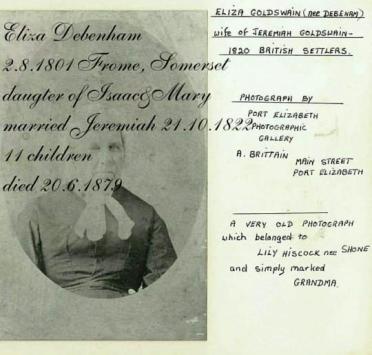 Eliza Debenham
2.8.1801 Frome, Somerset
daugter of Isaac&Mary
married Jeremiah 21.10.1822
11 children
died 20.6.1879
ELIZA GOLDSWAIN (NEE DEBENHAM)
wife of JEREMIAH GOLDSWAIN-
1820 BRITISH SETTLERS.
PHOTOGRAPH BY
PORT ELIZABETH
PHOTOGRAPHIC
GALLERY
A. BRITTAIN
MAIN STREET
PORT ELIZABETH
A VERY OLD PHOTOGRAPH
which belonged to
LILY HISCOCK nee SHONE
and simply marked
GRANDMA.